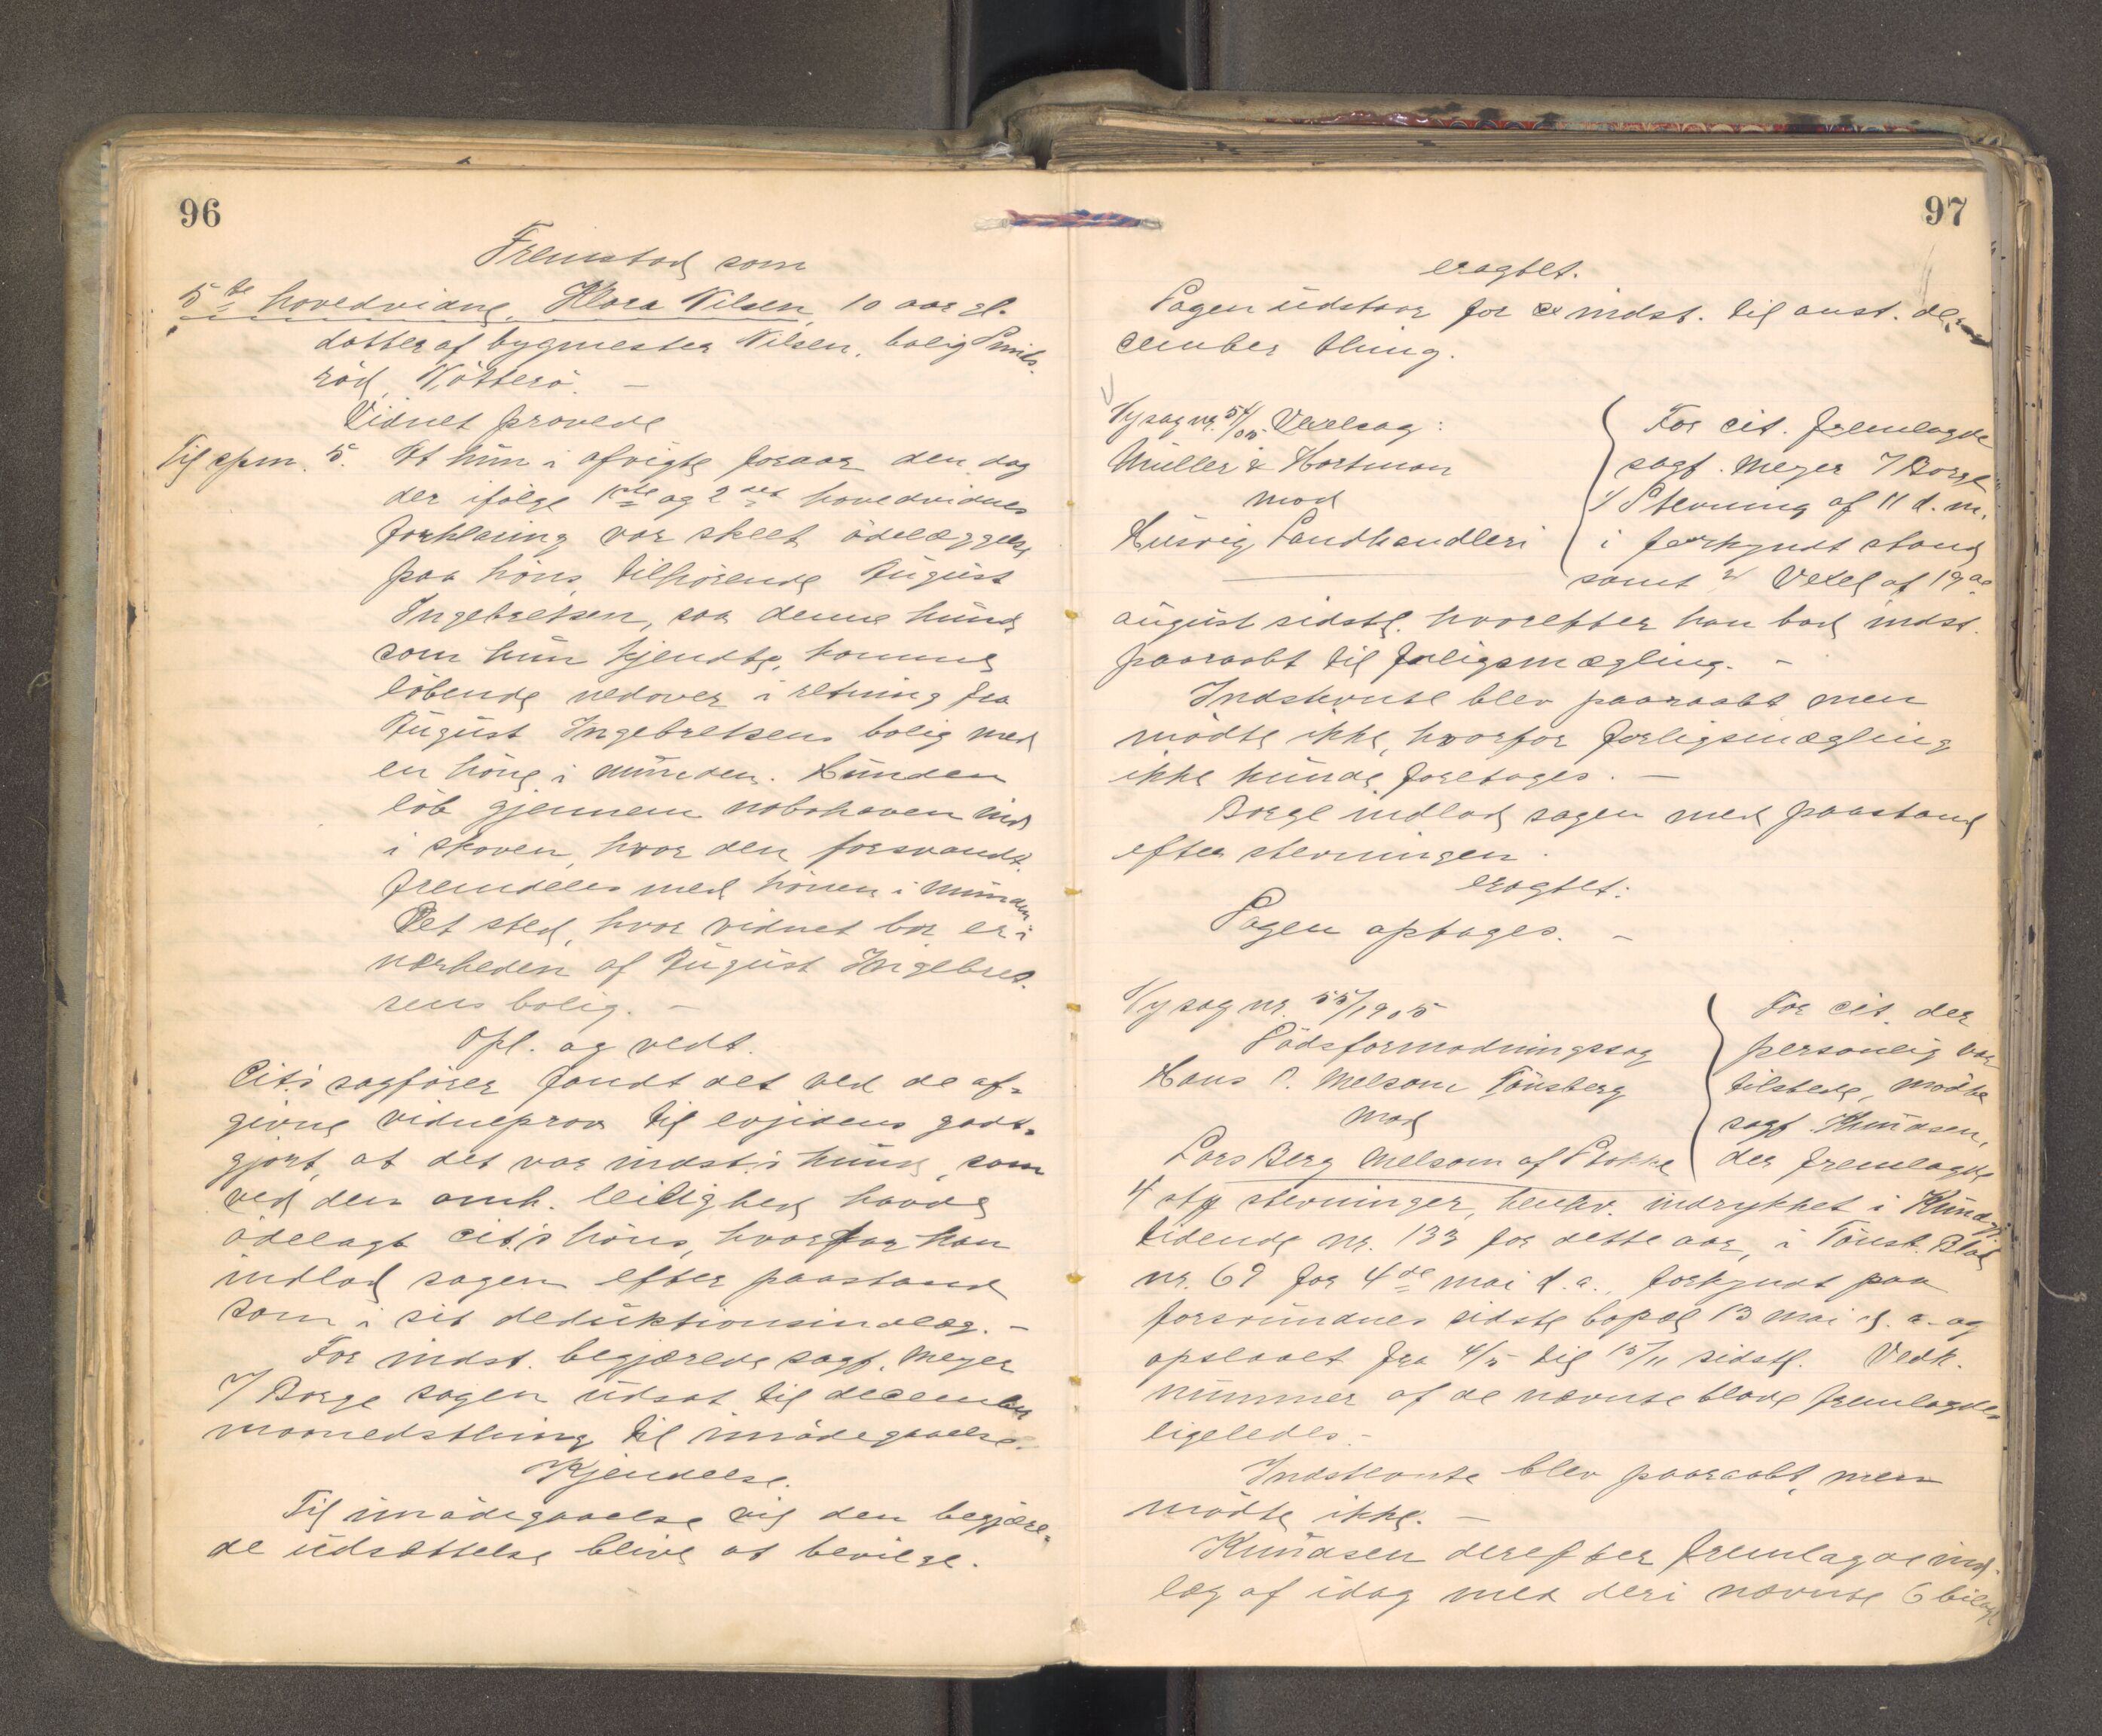 96
Fremstod som
5te hovedvidne, Klara Nilsen, 10 aar gl.
datter af bygmester Nilsen, bolig Smids-
röd, Nötterö. –
Vidnet provede
Til spm. 5. At hun i afvigte foraar den dag
der ifölge 1ste og 2det hovedvidnes
forklaring var skeet ödelæggelse
paa höns, tilhörende August
Ingebretsen, saa denne hund,
som hun kjendte, komme
löbende nedover i retning fra
August Ingebretsens bolig med
en höne i munden. Hunden
löb gjennem nabohaven ind
i skoven, hvor den forsvandt
fremdeles med hönen i munden
Det sted, hvor vidnet bor er i
nærheden af August Ingebret-
sens bolig. –
Opl. og vedt.
Cit.s sagförer fandt det ved de af-
givne vidneprov til evidens godt-
gjort, at det var indst.s hund, som
ved den omh. leilighed havde
ödelagt cit.s höns, hvorfor han
indlod sagen efter paastand
som i sit deduktionsindlæg. –
For indst. begjærede sagf. Meyer
v/ Borge sagen udsat til december
maanedsthing til imödegaaelse.
Kjendelse.
Til imödegaaelse vil den begjære-
de udsættelse blive at bevilge.
97
eragtet.
Sagen udstaar for indst. til anst. de-
cember thing.
Ny sag nr. 54/05 Vexelsag:
Müller & Hartman
mod
Husvig Landhandleri
For cit. fremlagde
sagf. Meyer v/ Borge
1/ Stevning af 11 d. m.
i forkyndt stand
samt 2/ Vexel af 19de
august sidstl. hvorefter han bad indst.
paaraabt til forligsmægling. –
Indstevnte blev paaraabt men
mödte ikke, hvorfor forligsmægling
ikke kunde foretages. –
Borge indlod sagen med paastand
efter stevningen.
eragtet:
Sagen optages. –
Ny sag nr. 55/1905
Dödsformodningssag
Hans P. Melsom Tönsberg
mod
Lars Berg Melsom af Stokke
For cit. der
personlig var
tilstede, mödte
sagf. Knudsen,
der fremlagde
4 stevninger, henhv. indrykket i Kundgj.
tidende nr. 133 for dette aar, i Tönsb. Blad
nr. 69 for 4de mai d. a., forkyndt paa
forsvundnes sidste bopæl 13 mai d. a. og
opslaaet fra 4/5 til 15/11 sidstl. Vedk.
nummer af de nævnte blade fremlagdes
ligeledes. –
Indstevnte blev paaraabt, men
mödte ikke. –
Knudsen derefter fremlagde ind-
læg af idag med deri nævnte 6 bilag